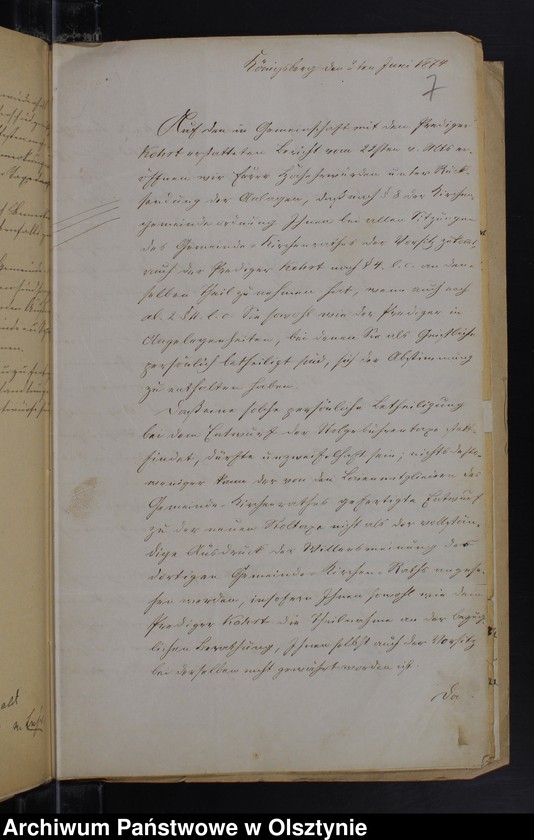 Königsberg den ten Juni 1874
7
Auf den in Gemeinschaft mit dem Prediger
Kohrt erstatteten Bericht vom 22sten v. Mts er-
öffnen wir Hochehrwürden unter Rück-
sendung der Anlagen, daß nach § 8 der Kirchen-
gemeindeordnung Ihnen bei allen Sitzungen
des Gemeinde Kirchenrathes der Vorsitz zusteht
auch der Prediger Kohrt nach § 4. l. c. an den-
selben Theil zu nehmen hat, wenn auch nach
al. 2 § 11. l. c. Sie sowohl wie der Prediger in
Angelegenheiten, bei denen Sie als Geistliche
persönlich betheiligt sind, sich der Abstimmung
zu enthalten haben.
Daß eine solche persönliche Betheiligung
bei dem Entwurf der Stolgebührentaxe statt-
findet, dürfte unzweifelhaft sein; nichts desto
weniger kann der von den Laienmitgliedern des
Gemeinde-Kirchenrathes gefertigte Entwurf
zu der neuen Stoltaxe nicht als der vollstän-
dige Ausdruck der Willensmeinung des
dortigen Gemeinde-Kirchen-Raths angese-
hen werden, insofern Ihnen sowohl wie dem
Prediger Kohrt die Theilnahme an der bezüg-
lichen Berathung, Ihnen selbst auch der Vorsitz
bei derselben nicht gewährt worden ist.
Da
Archiwum Państwowe w Olsztynie